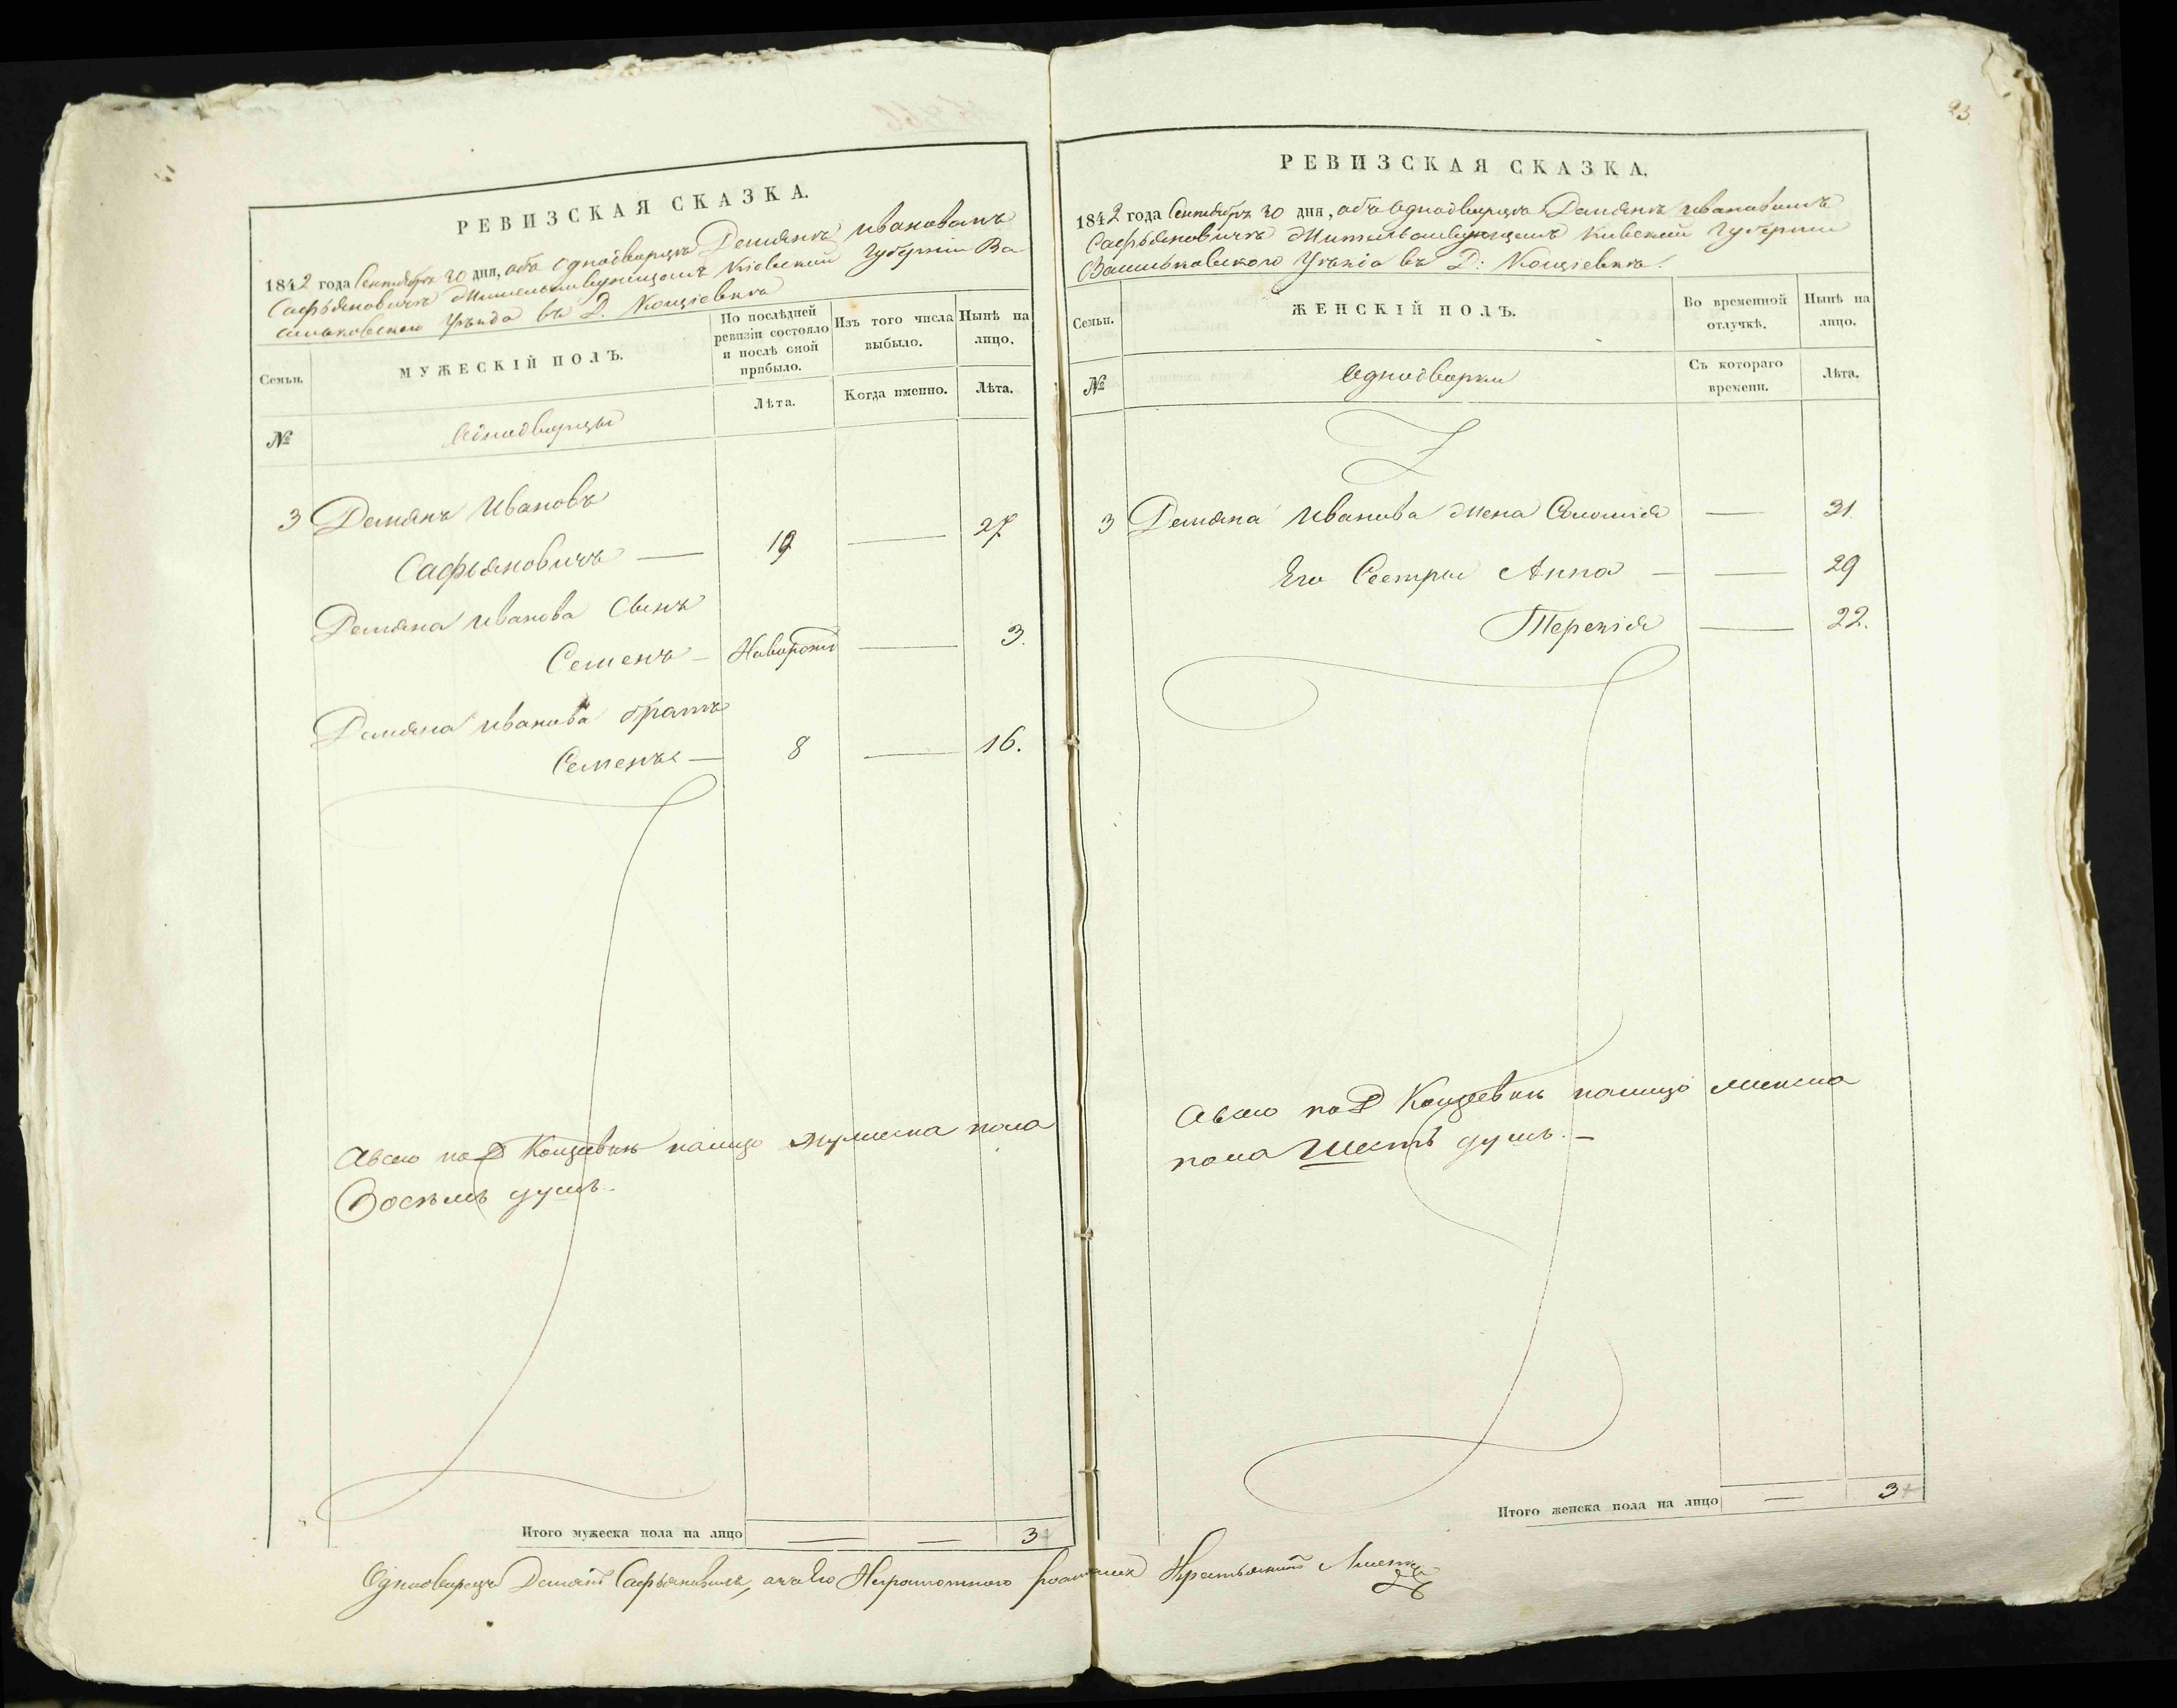 РЕВИЗСКАЯ СКАЗКА.
1842 года Сентября 20 дня, объ однодворцѣ Демянѣ Ивановомъ
Сафьяновичѣ Жительствующемъ Кіевской Губерніи Ва
сильковского Уѣзда въ Д. Концѣевкѣ
Семьи.
МУЖЕСКІЙ ПОЛЪ.
По послѣдней ревизіи состояло и послѣ оной прибыло.
Изъ того числа выбыло.
Нынѣ на лицо.
№
Однодворцы
Лѣта.
Когда именно.
Лѣта.
3 Демянъ Ивановъ
Сафьяновичъ — 19 — 27
Демяна Иванова Сынъ
Семенъ — Новорожд — 3.
Демяна Иванова братъ
Семенъ — 8 — 16.
Авсего по Д налицо мужеска пола
Восѣмъ душъ.
Итого мужеска пола на лицо — — 3
93
РЕВИЗСКАЯ СКАЗКА.
1842 года Сентября 20 дня, объ однодворцѣ Демянѣ Ивановомъ
Сафьяновичѣ Жительствующемъ Киевской Губернии
Васильковского Уѣзда въ Д:
Семьи.
ЖЕНСКІЙ ПОЛЪ.
Во временной отлучкѣ.
Нынѣ на лицо.
№
Однодворки
Съ котораго времени.
Лѣта.
3 Демяна Иванова Жена Соломія — 31
Его Сестры Анна — — 29
Терезія — 22.
Авсего по Д налицо женска
пола Шесть душъ. —
Итого женска пола на лицо — 3
Однодворецъ Демянъ Сафьяновичъ, а за Его Неграмотного